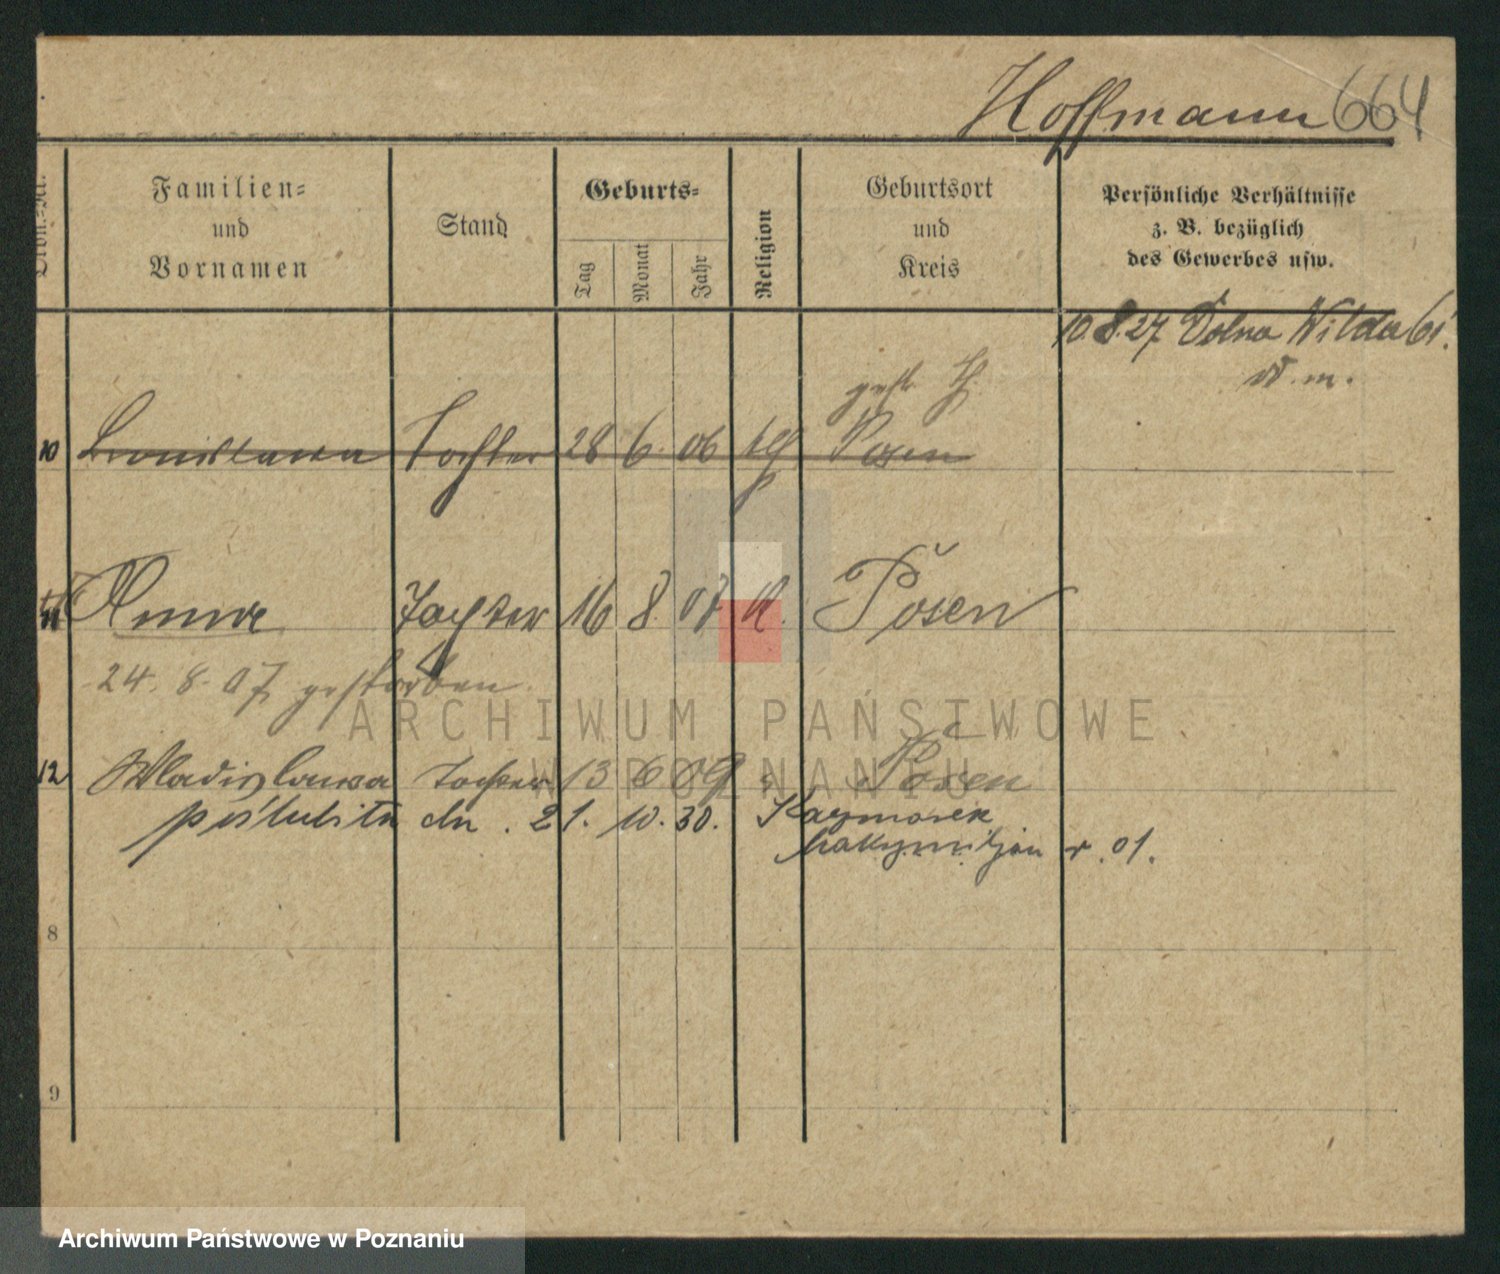 Hoffmann 664
Familien= und Vornamen
Stand
Geburts=
Tag
Monat
Jahr
Religion
Geburtsort und Kreis
Persönliche Verhältnisse
z. B. bezüglich
des Gewerbes usw.
10.8.27 Dolna Wilda 61.
gest.
10 Bronislawa Tochter 28 6. 06 Posen
11 Anna Tochter 16 8. 07 Posen
24. 8. 07 gestorben
ARCHIWUM PAŃSTWOWE
W POZNANIU
12 Wladislawa Tochter 13 6 09 Posen
poślubiła dn. 21. 10. 30. Kaczmarek
Maksymiljan r. 01.
8
9
Archiwum Państwowe w Poznaniu